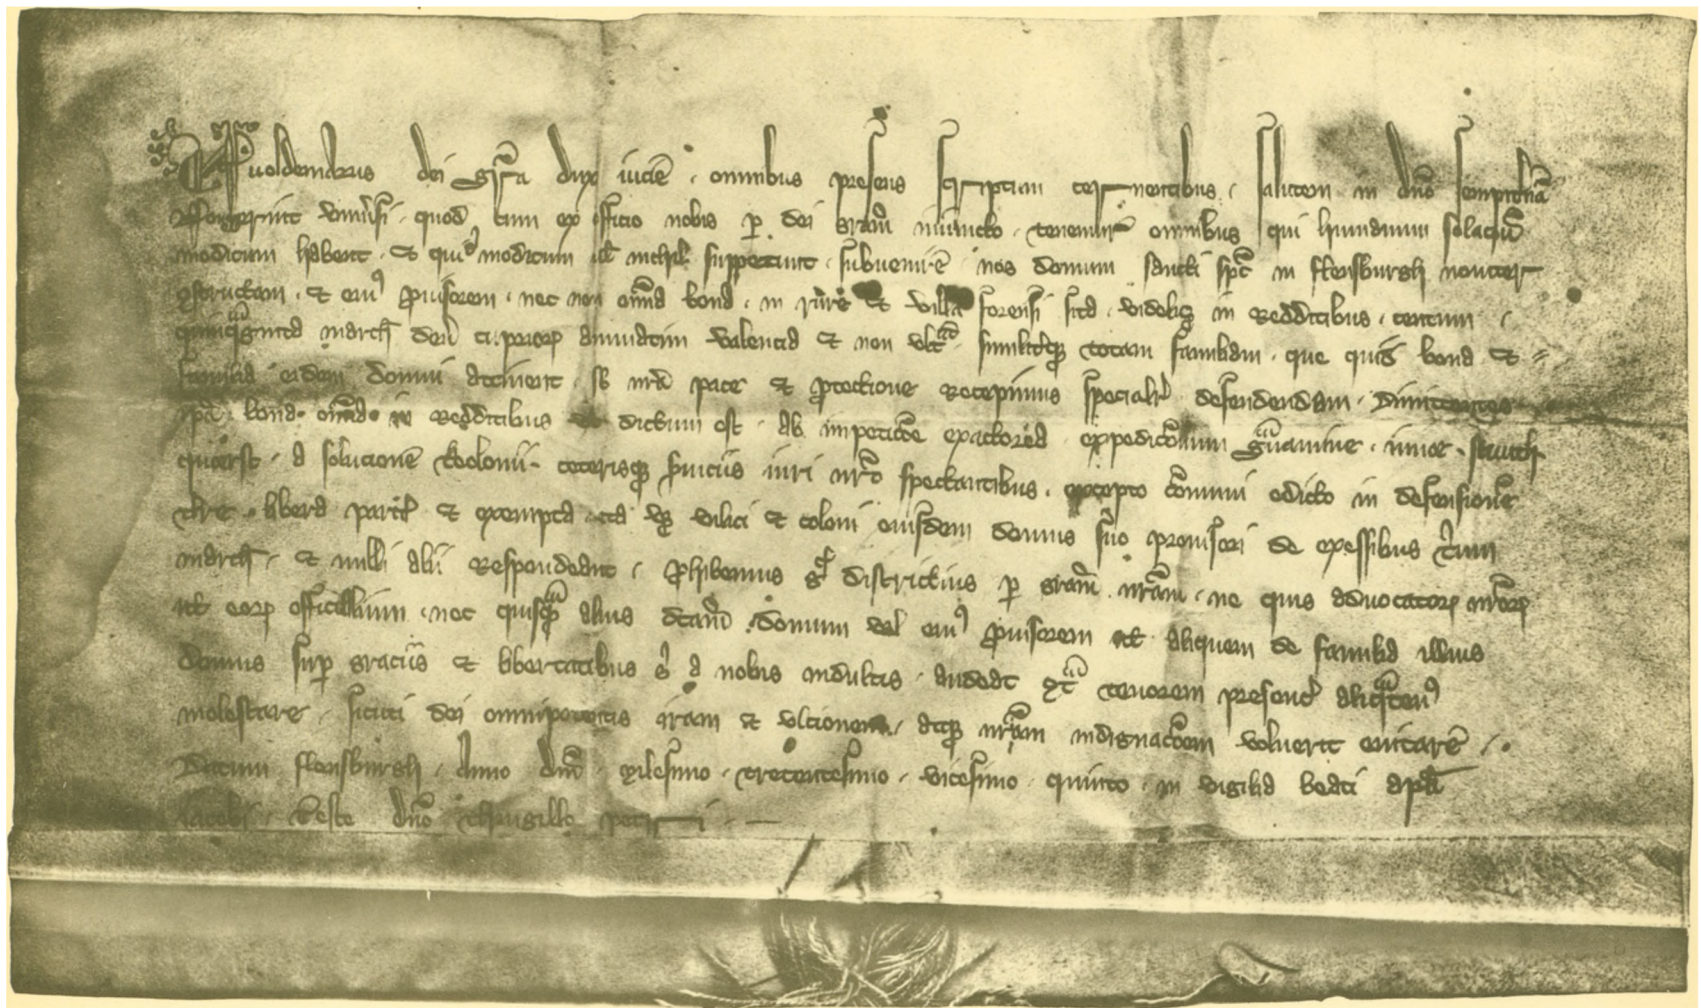 Woldemarus dei gr̄a dux iucie . omnibus presens scriptum cernentibus . salutem in dn̄o sempiternā
Nouerint vniūsi . quod cum ex officio nobis ꝑ dei grām iniuncto . tenemur omnibus qui humanum solaciū
modicum habent . et quibꝰ modicum ul̄ nichil suppetunt . subuenire . nos domum sancti spc̄ in flensburgh nouiter
ꝯstructam . et eiꝰ ꝓuisorem . nec non om̄ia bona . in rure et villa forensi sita . videlicꝫ in redditibus . centum .
quinquaginta march den̄ cuprorꝝ annuatim valencia et non vlt̄ . similiterqꝫ totam familiam . que quid̄ bona et
familia eidem domui attinent . sb̄ nr̄a pace et ꝓtectione recepimus specialiť defendendam . Dimittentes
ip̄a bona om̄ia in redditibus ut dictum est . ab impeticōe exactoria . expedicionum grauamine . inne . stuuth
quærst . a solucione theolonii . ceterisqꝫ seruiciis iuri nr̄o spectantibus . excepto cōmuni edicto in defensione
terre . libera pariť et exempta ita vꝫ vilici et coloni eiusdem domus suo prouisori de exessibus trium
march . et nulli alii respondeant . ꝓhibemus g° districtius ꝑ grām nr̄am . ne quis aduocatorꝝ nr̄orꝝ
ul̄ eorꝝ officialium . nec quisqꝫ alius dc̄am domum vel eiꝰ ꝓuisorem ul̄ aliquem de familia illius
domus suꝑ graciis et libertatibus s̄ a nobis indultis . audeat ꝯtra tenorem presenciū aliqꝫtenꝰ
molestare . sicuti dei omnipotentis iram et vlcionem . atqꝫ nr̄am indignacōem voluerit euitare .
Datum flensburgh . Anno dn̄i . Milesimo . trecentesimo . vicesimo . quinto . in vigilia beati apl̄i
iacobi . Teste dn̄o thrugillo petri . —